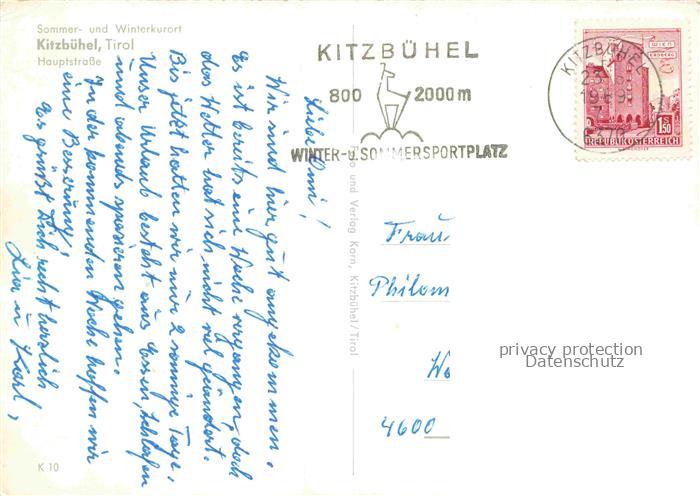 Sommer- und Winterkurort
Kitzbühel, Tirol
Hauptstraße
Liebe Omi!
Wir sind hier gut angekommen.
Es ist bereits eine Woche vergangen, doch
das Wetter hat sich nicht viel geändert.
Bis jetzt hatten wir nur 2 sonnige Tage.
Unser Urlaub besteht aus Essen, Schlafen
und abends spazieren gehen.
In der kommenden Woche hoffen wir
eine Besserung!
Es grüßt Dich recht herzlich
Karl,
K 10
und Verlag Korn, Kitzbühel/Tirol
KITZBÜHEL
800 2000m
WINTER-u.SOMMERSPORTPLATZ
KITZBÜHEL
1969
6370
WIEN
ERDBERG
150
REPUBLIK ÖSTERREICH
Frau
Philom
We
4600
privacy protection
Datenschutz